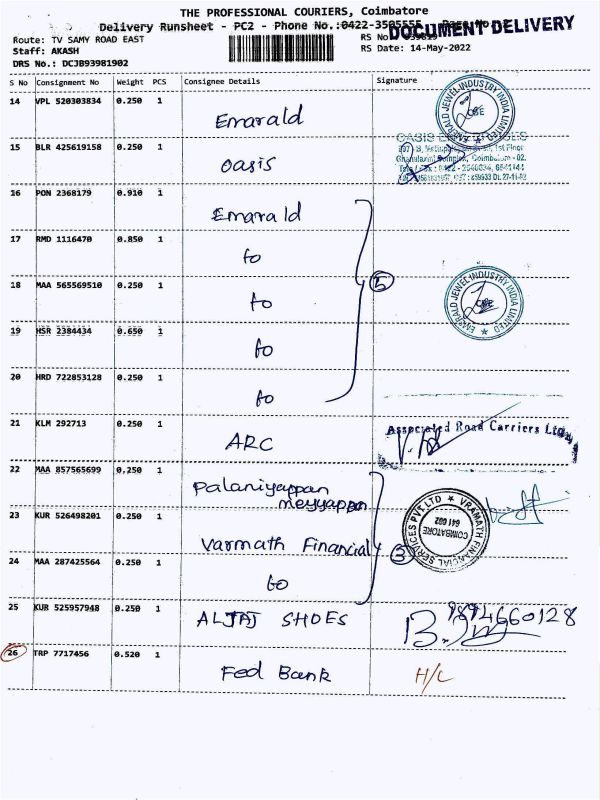 THE PROFESSIONAL COURIERS, Coimbatore
Delivery Runsheet - PC2 - Phone No.:0422-3505555
DOCUMENT DELIVERY
Route: TV SAMY ROAD EAST RS No
Staff: AKASH RS Date: 14-May-2022
DRS No.: DCJB93981902
S No Consignment No Weight PCS Consignee Details Signature
14 VPL 520303834 0.250 1 Emarald
EMERALD JEWEL INDUSTRY INDIA LIMITED CBE
15 BLR 425619158 0.250 1 Oasis
16 PON 2368179 0.910 1 Emarald
17 RMD 1116470 0.850 1 to
18 MAA 565569510 0.250 1 to 5
EMERALD JEWEL INDUSTRY INDIA LIMITED CBE
19 HSR 2384434 0.650 1 to
20 HRD 722853128 0.250 1 to
21 KLM 292713 0.250 1 ARC
Associated Road Carriers Ltd
22 MAA 857565699 0,250 1 Palaniyappan
meyyappan
23 KUR 526498201 0.250 1 Varmath Financial 3
VRAMATH FINANCIAL SERVICES PVT LTD COIMBATORE 641 002
24 MAA 287425564 0.250 1 to
25 KUR 525957948 0.250 1 ALJAJ SHOES 9894660128
26 TRP 7717456 0.520 1 Fed Bank H/C